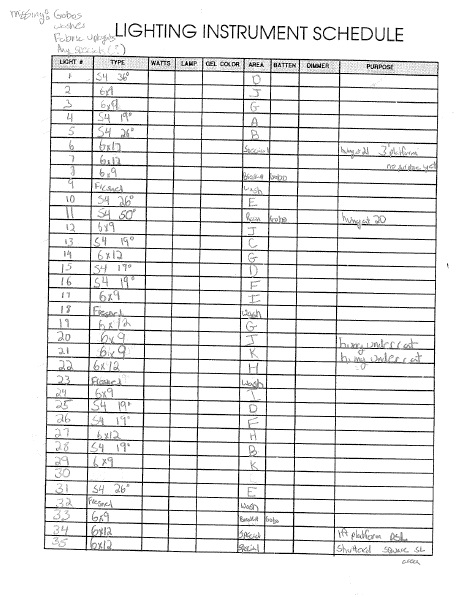 Missing: Gobos
Washes
Fabric Uplights
Any specials (?)
LIGHTING INSTRUMENT SCHEDULE
LIGHT # TYPE WATTS LAMP GEL COLOR AREA BATTEN DIMMER PURPOSE
1 S4 36° D
2 6x9 J
3 6x9 G
4 S4 19° A
5 S4 26° B
6 6x12 Special hung old 3' platform
7 6x12
8 6x9 Gobo
9 Fresnel Wash
10 S4 26° E
11 S4 50° hung at 20
12 6x9 J
13 S4 19° C
14 6x12 G
15 S4 19° D
16 S4 19° F
17 6x9 I
18 Fresnel Wash
19 6x12 G
20 6x9 J hung under cat
21 6x9 K hung under cat
22 6x12 H
23 Fresnel Wash
24 6x9 I
25 S4 19° D
26 S4 19° F
27 6x12 H
28 S4 19° B
29 6x9 K
30
31 S4 26° E
32 Fresnel Wash
33 6x9 Gobo
34 6x12 Special 1ft platform DSL
35 6x12 Special Shuttered square SL